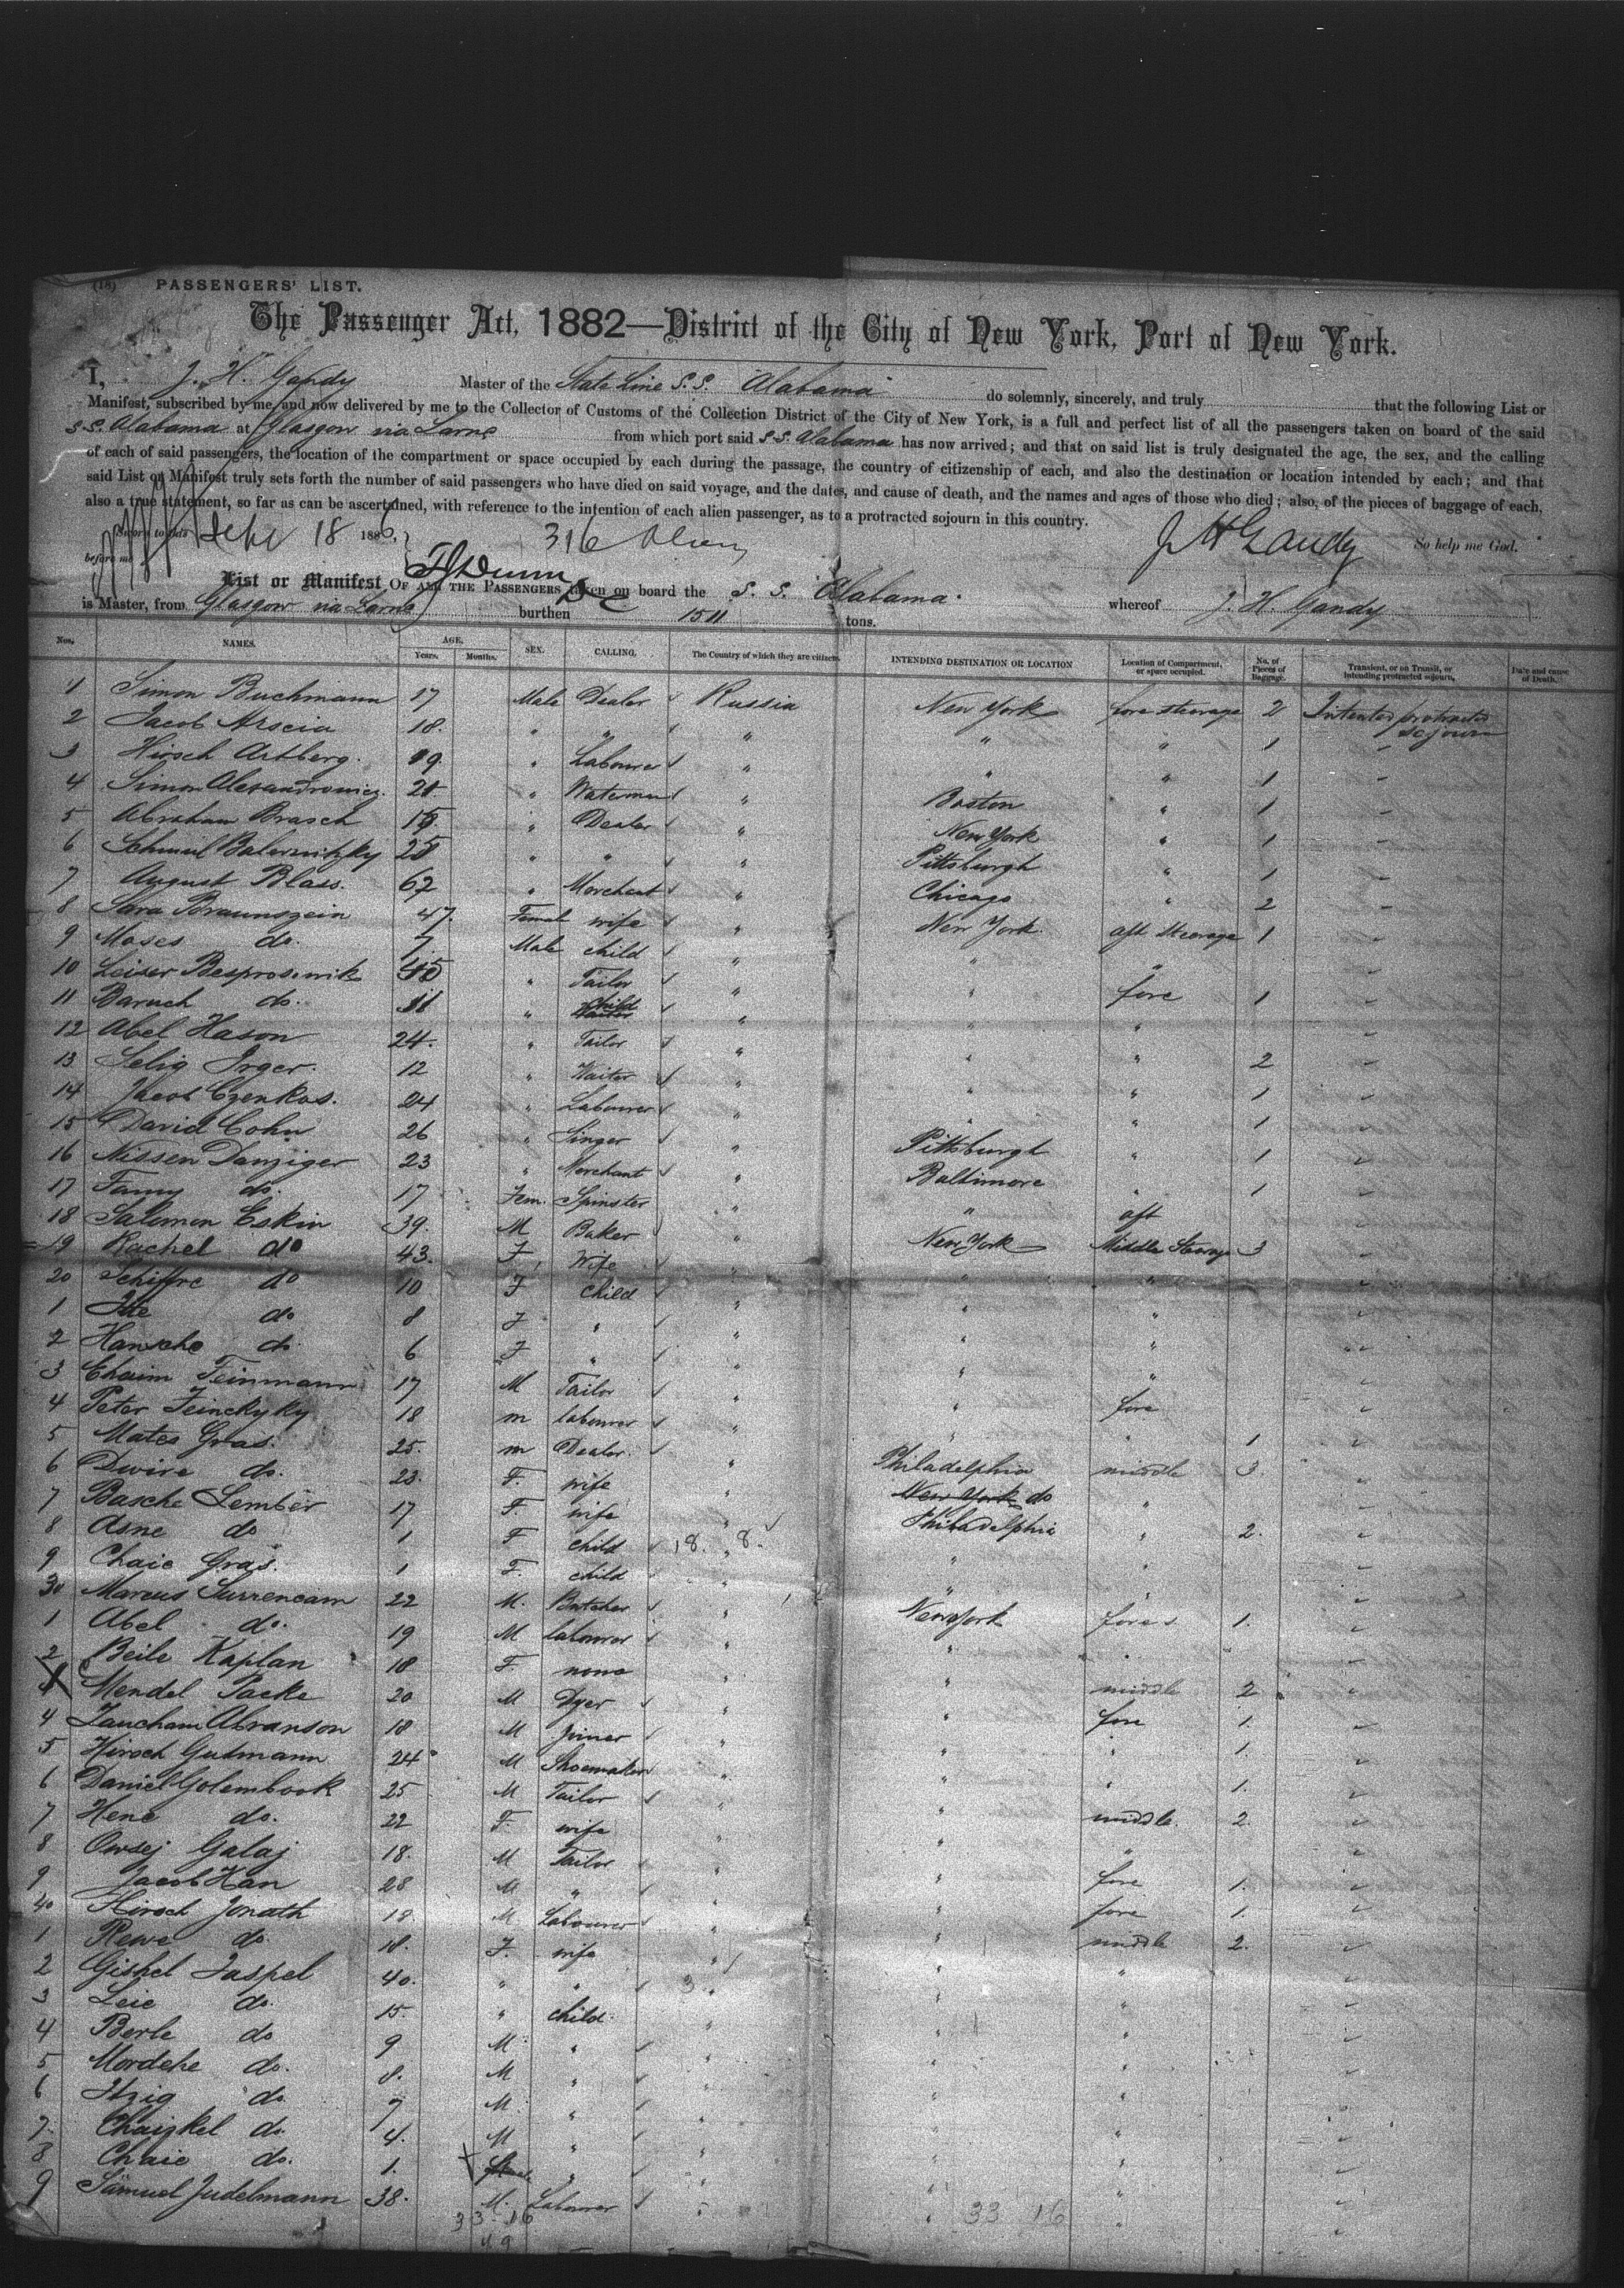 (18) PASSENGERS' LIST.
The Passenger Act, 1882—District of the City of New York, Port of New York.
I, J. H. Gandy Master of the State Line S.S. Alabama do solemnly, sincerely, and truly that the following List or
Manifest, subscribed by me, and now delivered by me to the Collector of Customs of the Collection District of the City of New York, is a full and perfect list of all the passengers taken on board of the said
S.S. Alabama at Glasgow via Larne from which port said S.S. Alabama has now arrived; and that on said list is truly designated the age, the sex, and the calling
of each of said passengers, the location of the compartment or space occupied by each during the passage, the country of citizenship of each, and also the destination or location intended by each; and that
said List or Manifest truly sets forth the number of said passengers who have died on said voyage, and the dates, and cause of death, and the names and ages of those who died; also, of the pieces of baggage of each,
also a true statement, so far as can be ascertained, with reference to the intention of each alien passenger, as to a protracted sojourn in this country.
Sworn to this Sept 18 1886, 316 J H Gandy So help me God.
before me
List or Manifest OF ALL THE PASSENGERS taken on board the S. S. Alabama. whereof J. H. Gandy
is Master, from Glasgow via Larne burthen 1511 tons.
Nos. NAMES. AGE. Years. Months. SEX. CALLING. The Country of which they are citizens. INTENDING DESTINATION OR LOCATION Location of Compartment, or space occupied. No. of Pieces of Baggage. Transient, or on Transit, or Intending protracted sojourn, Date and cause of Death.
1 Simon Buchmann 17 Male Dealer Russia New York fore steerage 2 Intended protracted sojourn
2 Jacob Arscia 18. " " " " " 1
3 Hirsch Artberg. 19. " Labourer " " " 1
4 Simon Alexandrowicz. " Waterman " Boston " 1
5 Abraham Brasch " Dealer " New York " 1
6 Schmul " " " Pittsburgh " 1
7 August Blass. 62 " Merchant " Chicago " 2
8 Sara Braunszein 47. Female wife " New York. aft steerage 1
9 Moses do. 7. Male child " " "
10 Leiser Besprosownik " Tailor " " fore 1
11 Baruch do. 11 " child " " "
12 Abel Hason 24. " Tailor " " " 2
13 Selig Jrger. 12 " Waiter " " " 1
14 Jacob Czenkas. 24 " Labourer " " " 1
15 David Cohn 26 " Singer " Pittsburgh " 1
16 Nissen Danziger 23 " Merchant " Baltimore " 1
17 Fanny do. 17 Fem. Spinster " " aft
18 Salomon Eskin 39. M Baker " New York Middle Steerage 3
19 Rachel do 43. F. Wife " " "
20 Schiffre do 10 F child " " "
1 Itte do 8 F " " " "
2 Hansche do 6 F " " " "
3 Chaim Feinmann 17 M Tailor " " fore
4 Peter Feinckyky 18 m labourer " " " 1
5 Mates Gras. 25. m Dealer. " Philadelphia middle 3.
6 Dwire do. 23. F. wife " New York do "
7 Basche Lember 17 F. wife " Philadelphia " 2.
8 Asne do 1 F child 18. " 8. " "
9 Chaie Gras. 1 F. child " " "
30 Marcus Surrencam 22 M. Butcher " New York fore 1.
1 Abel do. 19 M labourer " " "
2 Beile Kaplan 18 F. none " " middle 2
Mendel Packe 20 M Dyer " " fore 1.
4 Abranson 18 M Joiner " " " 1.
5 Hirsch Gutmann 24 M Shoemaker " " " 1.
6 Daniel Golembook 25 M Tailor " " middle. 2.
7 Hene do. 22 F. wife " " "
8 Owsej Galaj 18. M Tailor " " fore 1.
9 Jacob Kan 28 M " " " fore 1.
40 Hirsch Jonath 18. M Labourer " " middle 2.
1 Rewe do. 18. F. wife " " "
2 Gishel Jaspel 40. " " 3 " " "
3 Leie do. 15. " child. " " "
4 Berle do 9 M. " " "
5 Mordche do. 8. M " " " "
6 Itzig do. 7 M. " " "
7. Chaizkel do. 4. M " " " "
8 Chaie do. 1. " " "
9 Samuel Judelmann 38. M. Labourer " " "
33 16 33 16
49